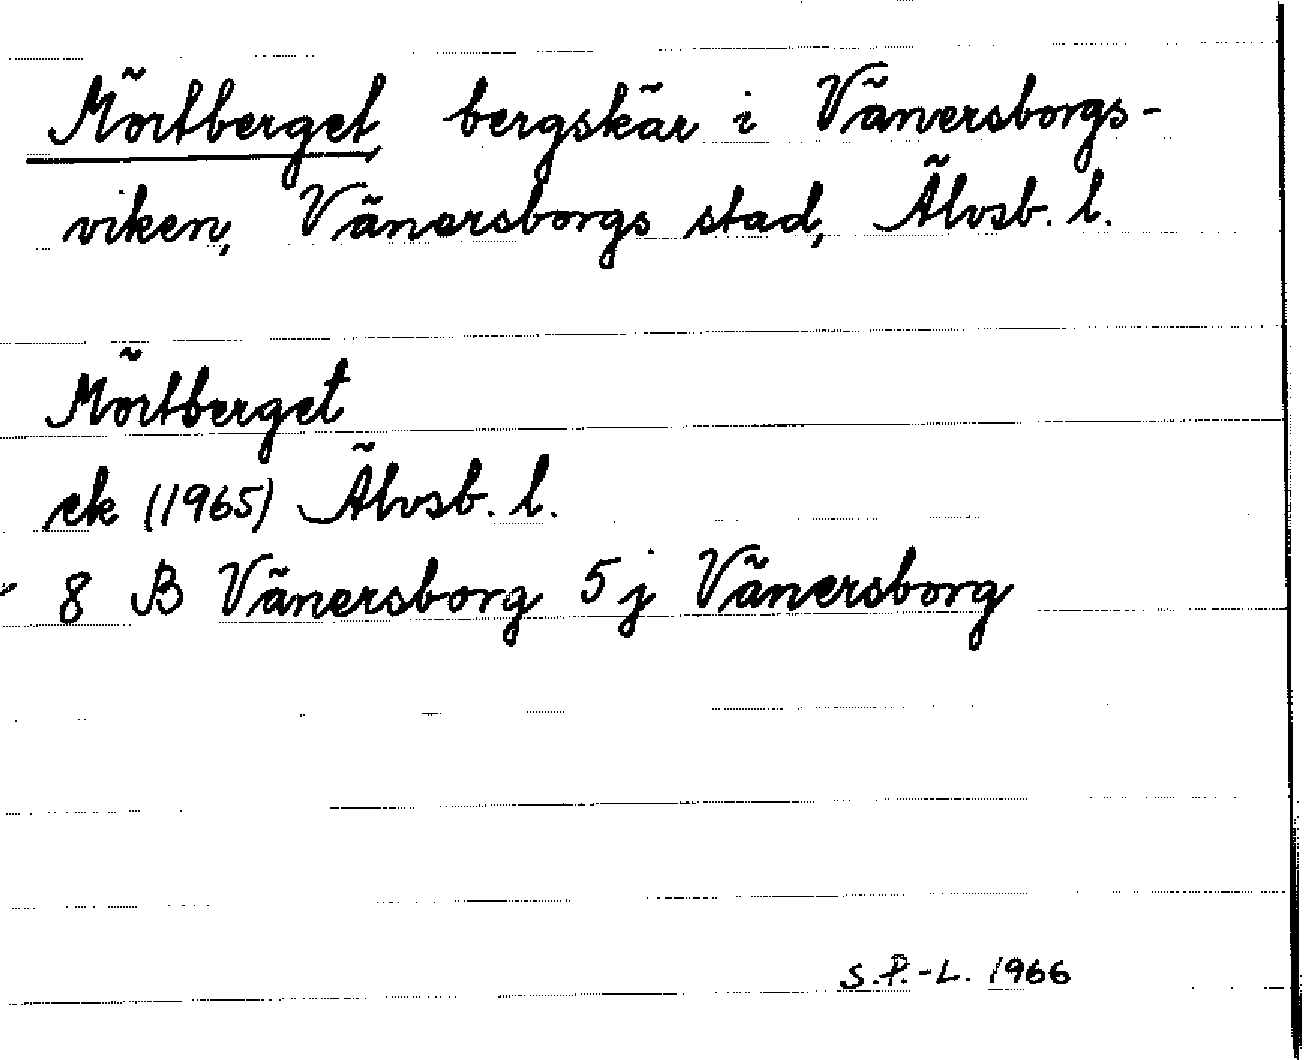 Mörtberget, bergskär i Vänersborgs-
viken, Vänersborgs stad, Älvsb. l.
Mörtberget
ek (1965) Älvsb. l.
8 B Vänersborg 5j Vänersborg
S.P.-L. 1966